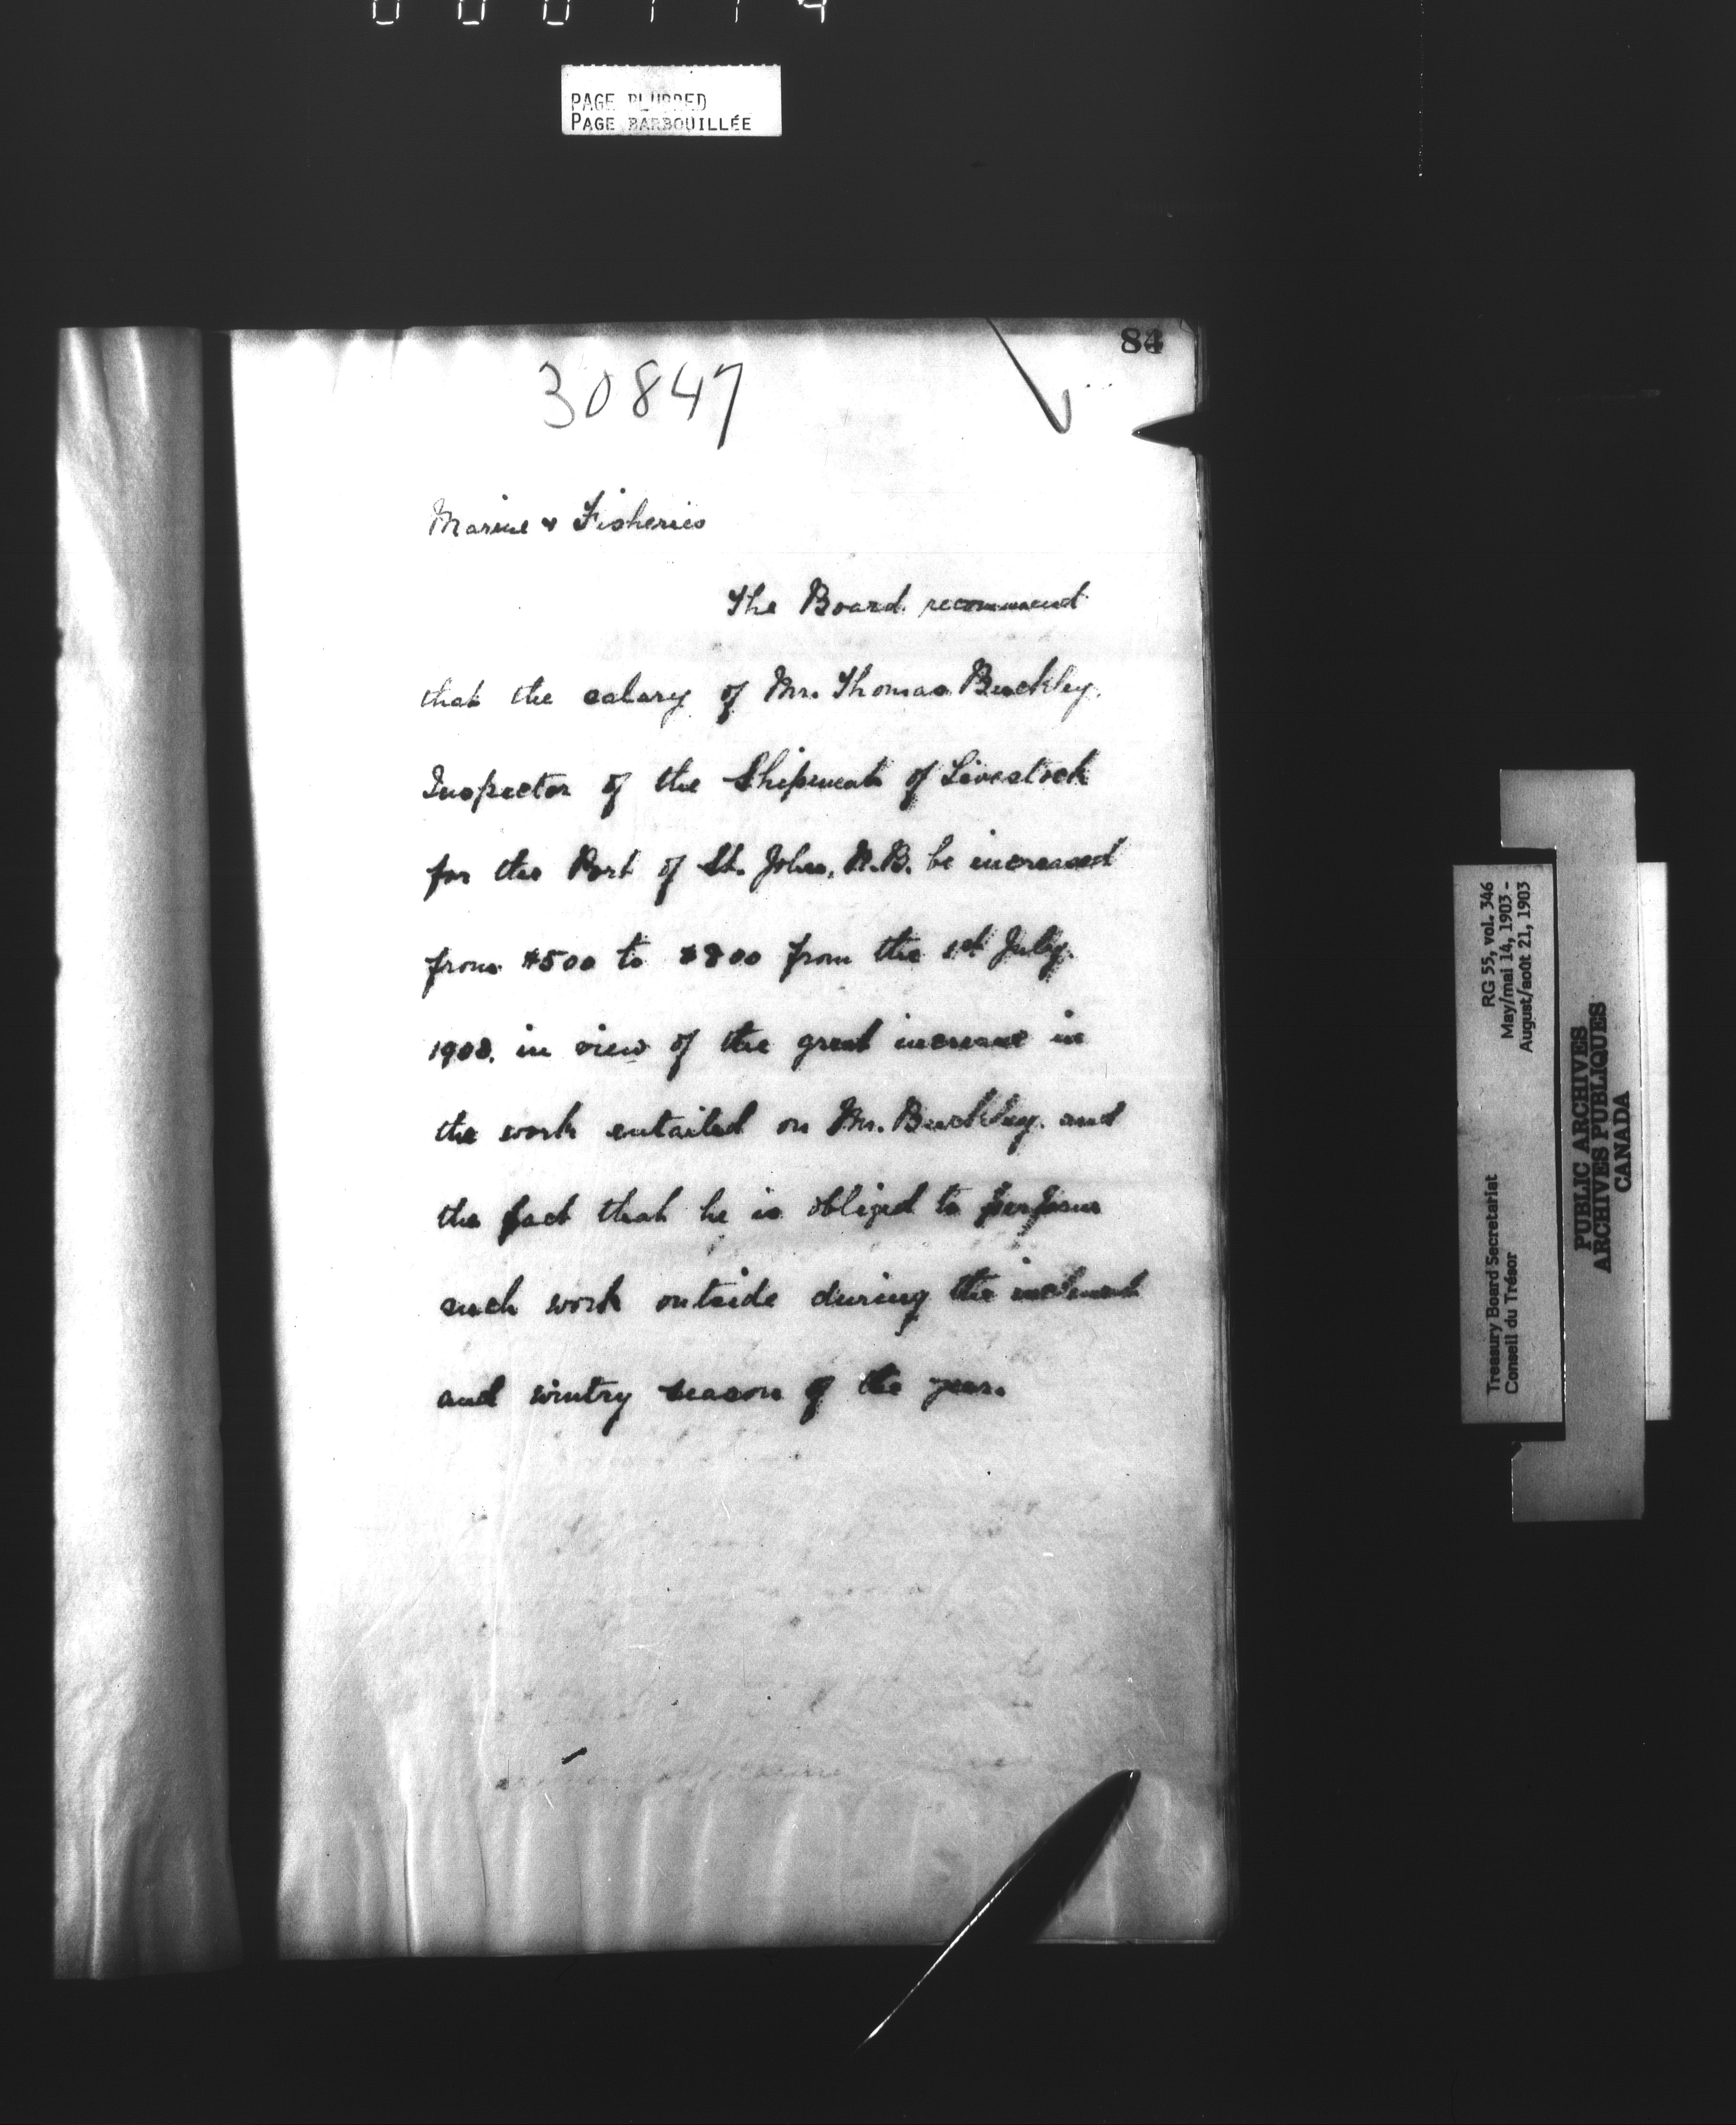 PAGE BLURRED
PAGE BARBOUILLÉE
84
30847
Marine & Fisheries
The Board recommend
that the salary of Mr. Thomas Buckley,
Inspector of the Shipment of Livestock
for the Port of St. John, N.B. be increased
from $500 to $800 from the 1st July,
1903, in view of the great increase in
the work entailed on Mr. Buckley and
the fact that he is obliged to perform
such work outside during the inclement
and wintry season of the year.
Treasury Board Secretariat RG 55, vol. 346
Conseil du Trésor May/mai 14, 1903 -
August/août 21, 1903
PUBLIC ARCHIVES
ARCHIVES PUBLIQUES
CANADA